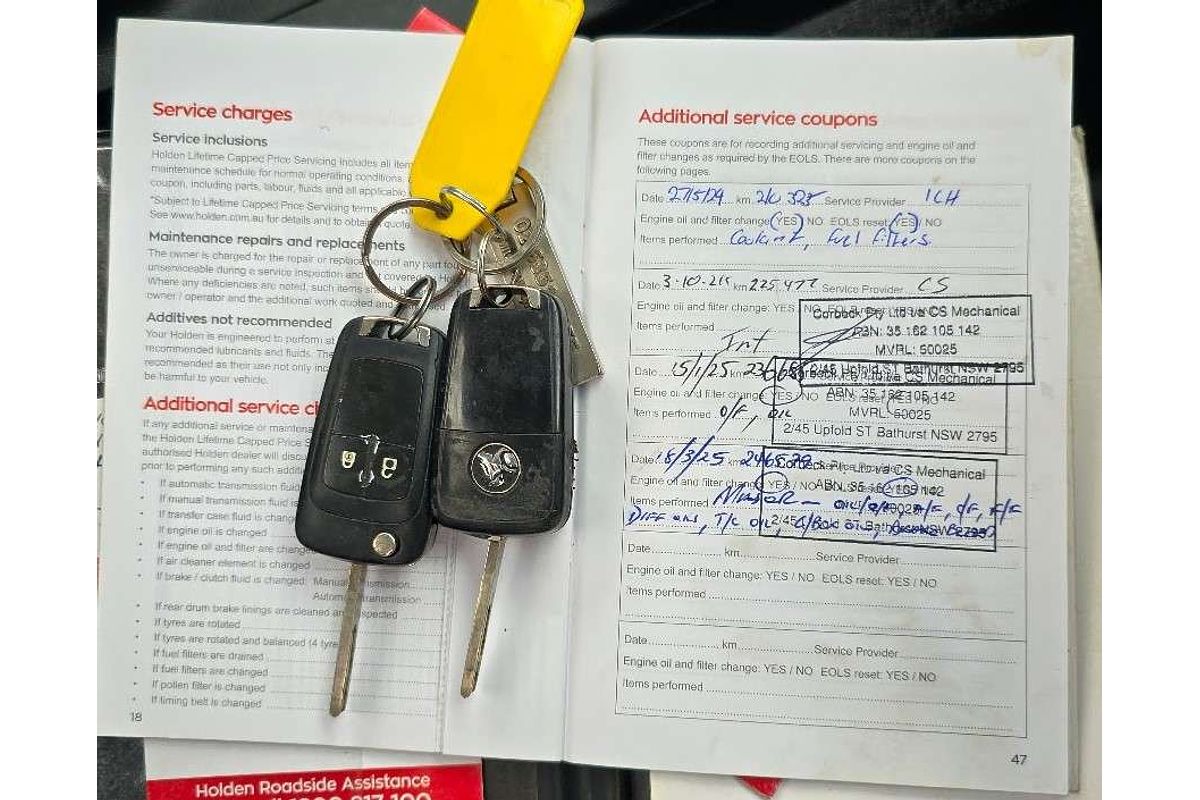 Service charges
Service inclusions
Holden Lifetime Capped Price Servicing includes all item
maintenance schedule for normal operating conditions.
coupon, including parts, labour, fluids and all applicable
*Subject to Lifetime Capped Price Servicing terms
See www.holden.com.au for details and to obtain quote.
Maintenance repairs and replacements
The owner is charged for the repair or replacement of any part fou
unserviceable during a service inspection and not covered Ho
Where any deficiencies are noted, such items s
owner / operator and the additional work quoted and
Additives not recommended
Your Holden is engineered to perform
recommended lubricants and fluids. The
recommended as their use not only inc
be harmful to your vehicle.
Additional service ch
If any additional service or maintena
the Holden Lifetime Capped Price S
authorised Holden dealer will discu
prior to performing any such addit
• If automatic transmission fluid
• If manual transmission fluid is
• If transfer case fluid is change
• If engine oil is changed
• If engine oil and filter are change
• If air cleaner element is changed
• If brake / clutch fluid is changed: Manual transmission
Automatic transmission
• If rear drum brake linings are cleaned and inspected
• If tyres are rotated
• If tyres are rotated and balanced (4 tyre
• If fuel filters are drained
• If fuel filters are changed
• If pollen filter is changed
• If timing belt is changed
18
Holden Roadside Assistance
Additional service coupons
These coupons are for recording additional servicing and engine oil and
filter changes as required by the EOLS. There are more coupons on the
following pages.
Date 27/5/24 km Service Provider ICH
Engine oil and filter change: YES / NO EOLS reset: YES / NO
Items performed Coolant, Fuel Filters
Date 3-10-24 km 225477 Service Provider CS
Engine oil and filter change: YES / NO EOLS reset: YES / NO
Corbeck Pty Ltd t/a CS Mechanical
ABN: 35 162 105 142
MVRL: 50025
2/45 Upfold ST Bathurst NSW 2795
Items performed
Int
Date 15/1/25 km
CS Mechanical
Engine oil and filter change: YES / NO EOLS reset
ABN: 35 162 105 142
MVRL: 50025
2/45 Upfold ST Bathurst NSW 2795
Items performed O/F, OIL
Date 18/3/25 km
Corbeck Pty Ltd t/a CS Mechanical
Engine oil and filter change: YES / NO
ABN: 35 162 105 142
Items performed MINOR - A/F, O/F, F/F
DIFF OILS, T/C OIL, G/BOX OIL,
2/45 Bathurst NSW 2795
Date km Service Provider
Engine oil and filter change: YES / NO EOLS reset: YES / NO
Items performed
Date km Service Provider
Engine oil and filter change: YES / NO EOLS reset: YES / NO
Items performed
47